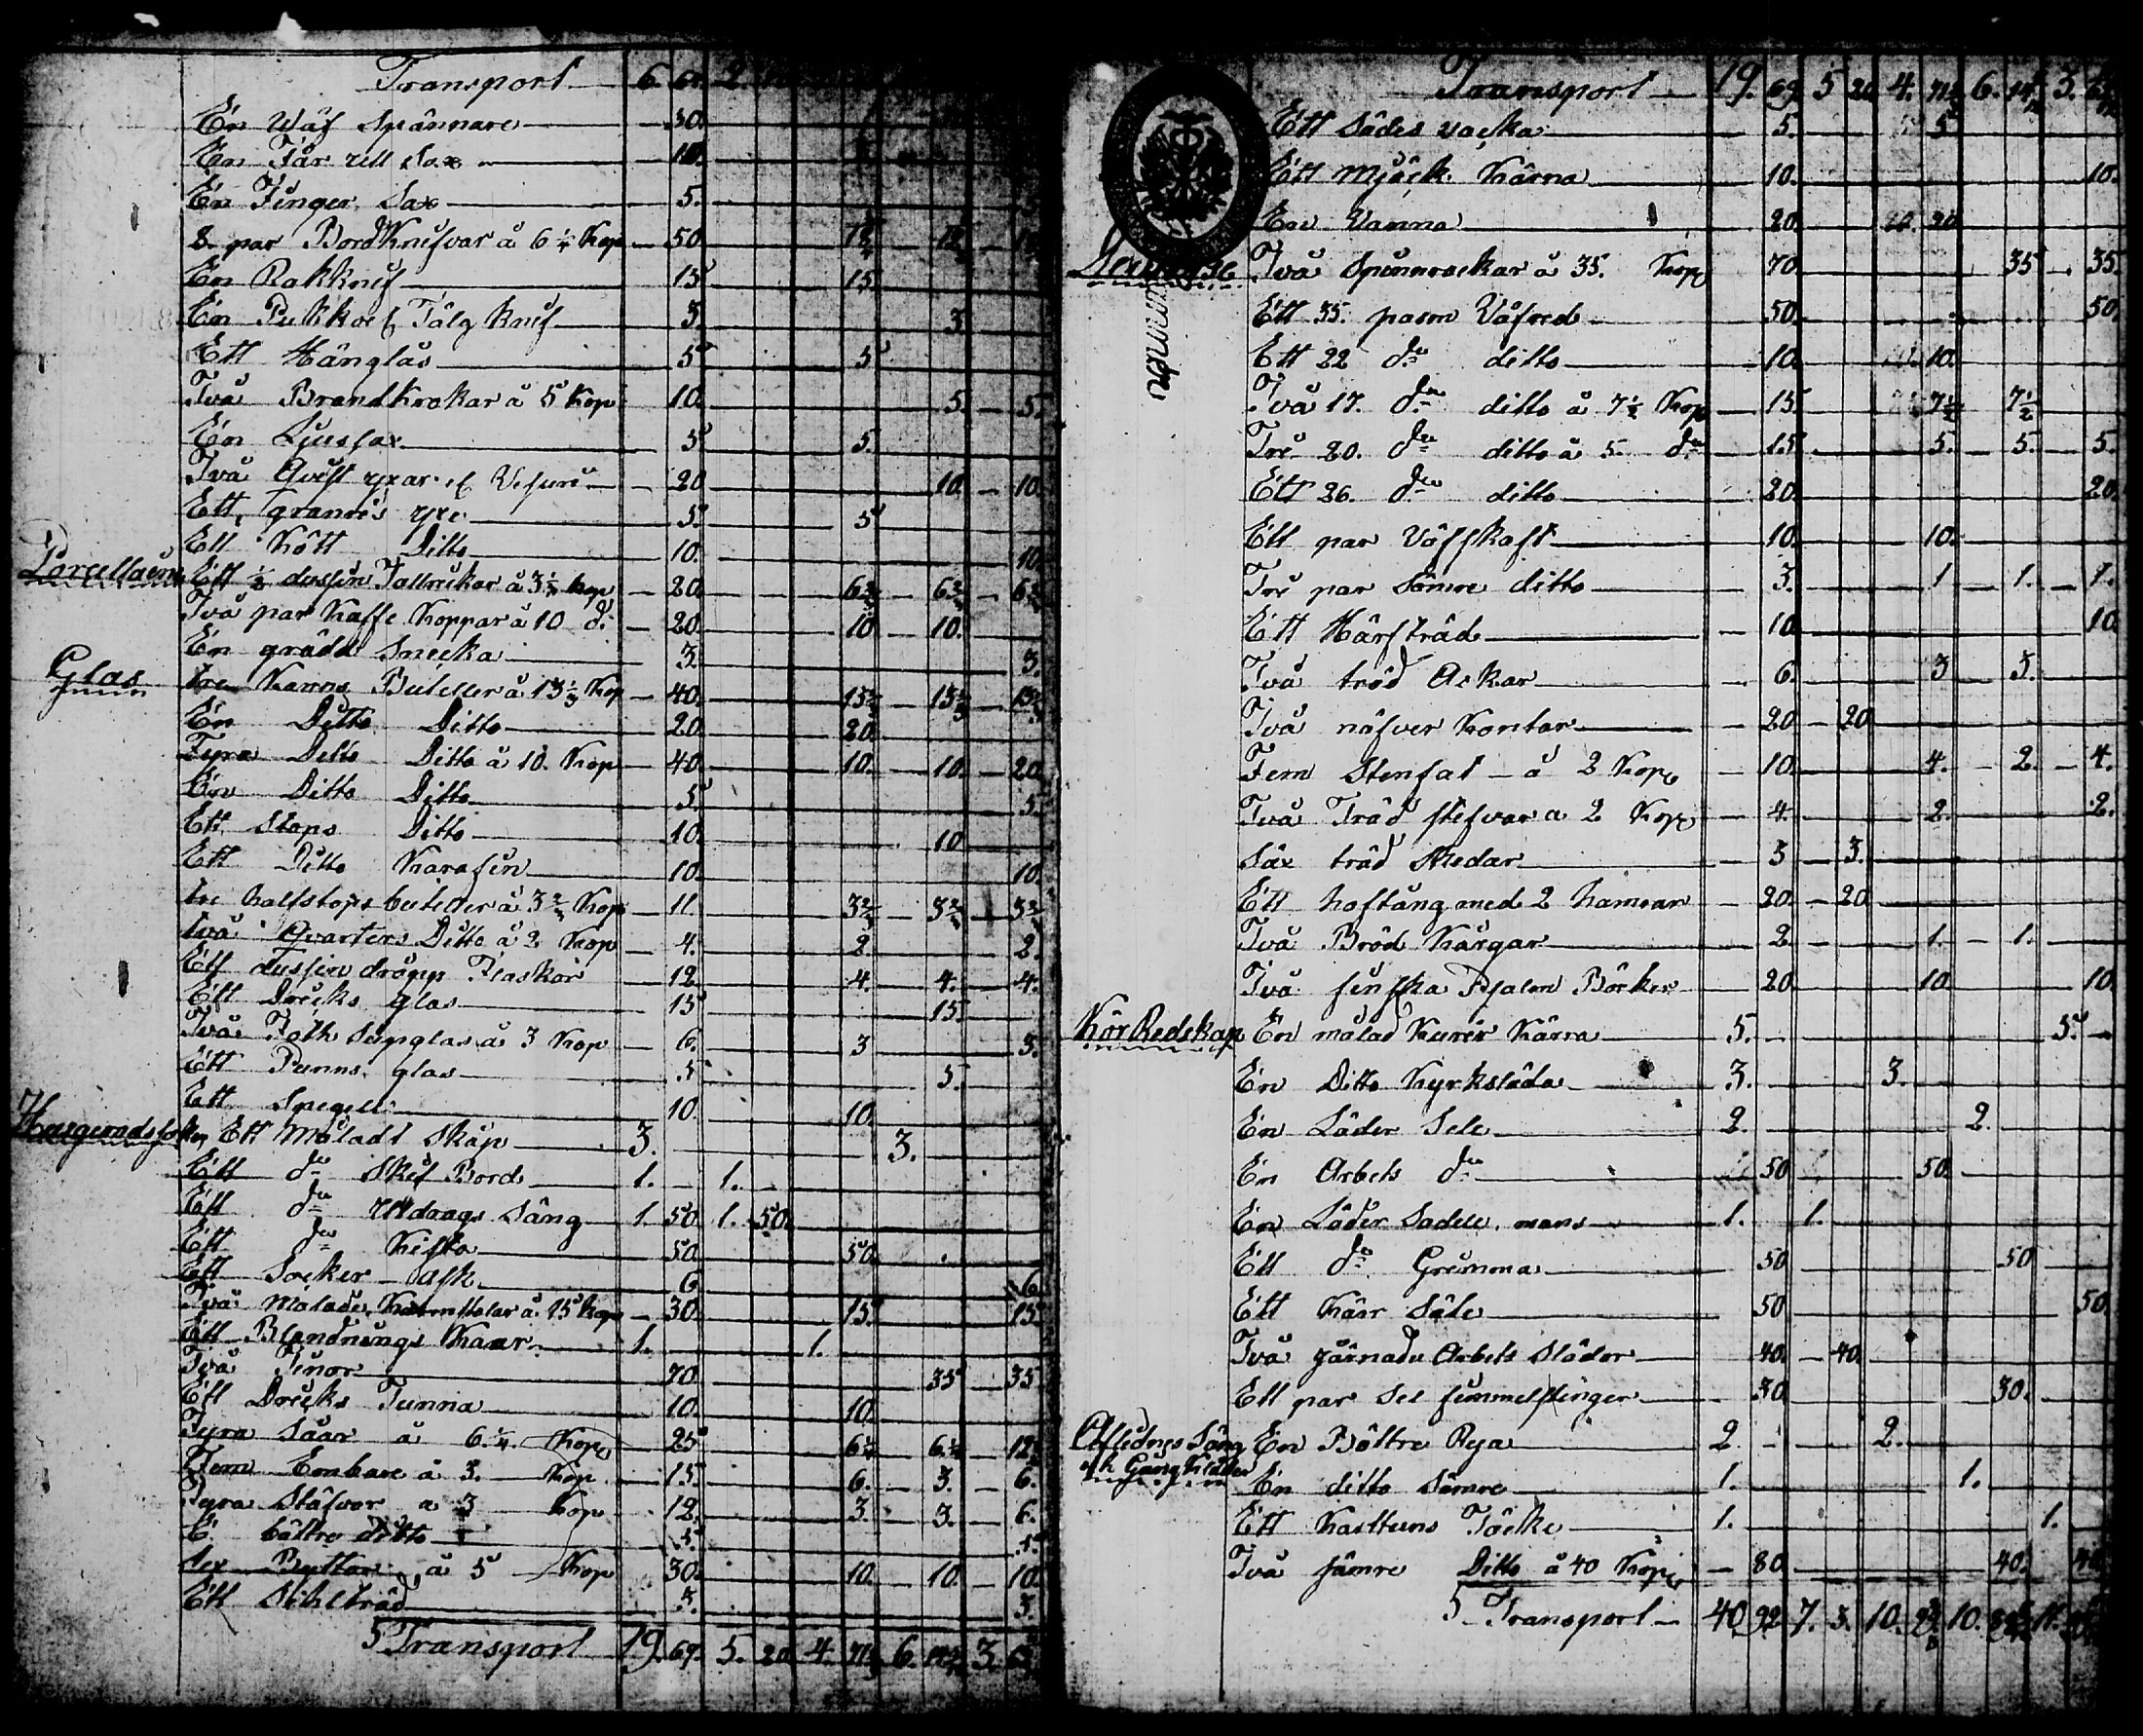 Transport 6. 2.
En Wäf Spännare 30.
En Får ull Sax 10.
En Finger Sax 5.
8. par Bord Knifvar å 6 1/4 Kop 50.
En Rakknif 15 15
En Pukko Tälg knif 3. 3
Ett Hänglås 5 5
Två Brandkrokar å 5 Kop 10. 5. 5.
En Ljussax 5 5.
Två Qvist yxar 20 10. 10.
Ett yxe 5. 5
Ett Kött Ditto 10. 10.
Porcellaine Ett 1/2 dussin Tallrickar å 3 1/3 kop 20. 6 2/3 6 2/3 6 2/3
Två par Kaffe Koppar å 10 d: 20. 10 10.
En grädd Snecka 3. 3.
Glas tre Kanns Buteller å 13 1/3 Kop 40. 13 1/3 13 1/3 13 1/3
En Ditto Ditto 20. 20.
Fyra Ditto Ditto å 10. Kop 40. 10. 10. 20.
En Ditto Ditto 5 5.
Ett Stops Ditto 10. 10
Ett Ditto Karafin 10. 10.
tre halfstops buteller å 3 2/3 Kop 11. 3 2/3 3 2/3 3 2/3
två Qvarters Ditto å 2 Kop 4. 2. 2.
Ett dussin dropp Flaskor 12 4 4. 4.
Ett Dricks glas 15 15.
Två Foth Supglas å 3 Kop 6. 3 3.
Ett Punns glas 5 5.
Ett Spegell 10. 10.
Ett Måladt Skåp 3. 3.
Ett do Skif Bord 1. 1.
Ett do Utdrags Säng 1. 50. 1. 50.
Ett do Kista 50 50.
Ett Socker ask 6 6
Två Målade Karmstolar å 15 kop 30. 15. 15.
Ett Blandnings Kaar 1. 1.
Två Tinor 70 35 35
Ett Dricks Tunna 10. 10.
Fyra Såar å 6 1/4 Kop 25 6 1/4 6 1/4 12 1/2
Fem Embare å 3. Kop 15. 6. 3. 6.
Fyra Stäfvor a 3 Kop 12. 3. 3. 6.
E. bättre ditto 5. 5.
Sex Byttor å 5 Kop 30. 10. 10. 10.
Ett Sihltråd 3. 3.
Transport 19. 69. 5. 20. 4. 6. 3.
Transport 19. 69. 5 20. 4. 6. 3.
Ett Sädes vacka 5. 5
Ett Mjöck Kärna 10. 10.
En Vanna 20. 20
Två Spinnrockar å 35. Kop 70. 35 35.
Ett 35. pasm Väfsked 50. 50.
Ett 22 do ditto 10. 10.
Två 17. do ditto å 7 1/2 Kop 15. 7 1/2 7 1/2
Tre 20. do ditto å 5. do 15 5. 5. 5.
Ett 26. do ditto 20. 20.
Ett par Väfskaft 10. 10.
Tre par Sämre ditto 3. 1 1. 1.
Ett Härfträd 10. 10
Två träd Askar 6. 3 3.
Två näfver Kontar 20 20
Fem Stenfat å 2 Kop 10. 4. 2. 4.
Två Träd stefvar a 2 Kop 4. 2. 2.
Säx träd Skedar 3 3.
Ett hoftång med 2 hamrar 20. 20
Två Bröd Kårgar 2 1. 1.
Två finska Psalm Böcker 20. 10 10.
Kör Redskap En målad Kurir Kärra 5. 5.
En Ditto Kyrksläda 3. 3.
En Läder Sele 2. 2.
En Arbets do 50 50.
En Läder Sadell mans 1. 1.
Ett do Grimma 50 50
Ett Kärr Säle 50 50.
Två Arbets Slädor 40. 40.
Ett par Sel 30 30.
Aflednes Säng och Gångkläder En Bättre Rya 2. 2.
En ditto Sämre 1. 1.
Ett Kattuns Täcke 1. 1.
Två sämre Ditto å 40 Kop 80 40. 40
Transport 40 92 7. 3. 10. 10. 11.